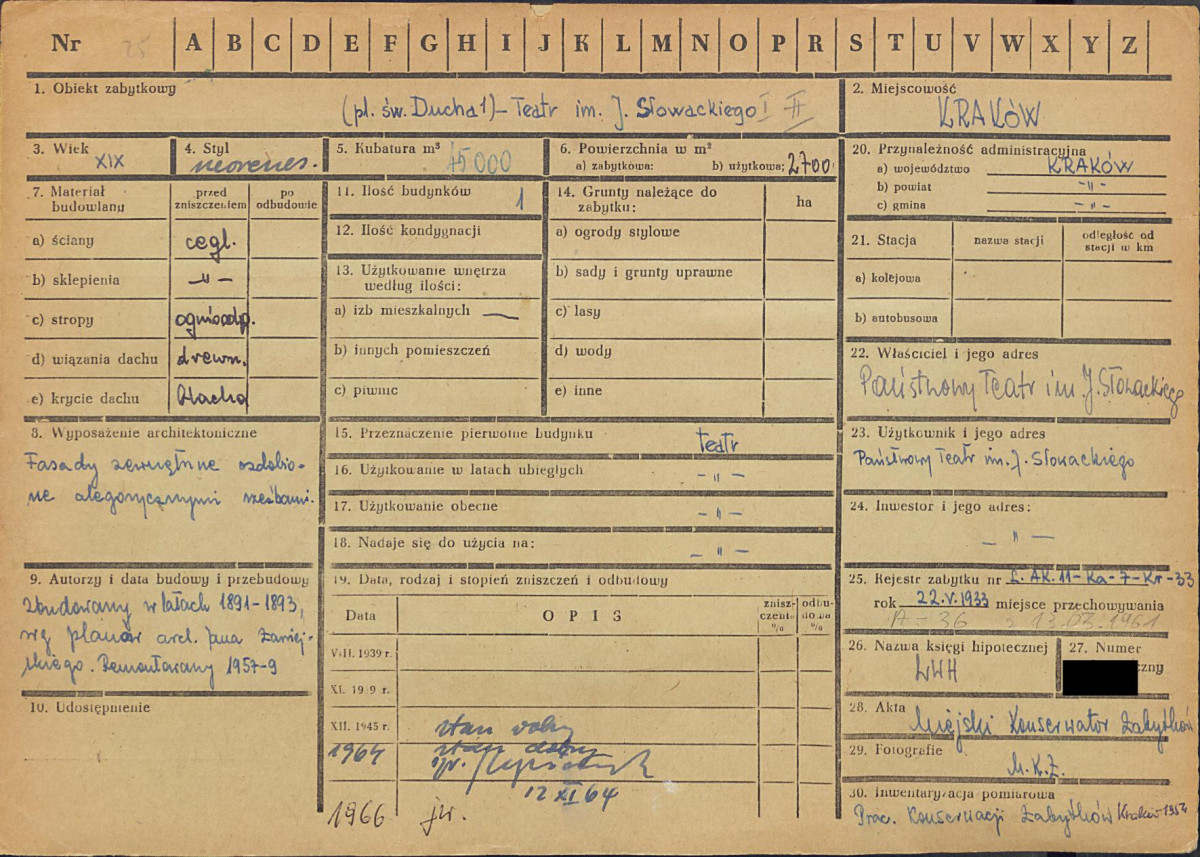 Nr 25 A B C D E F G H I J K L M N O P R S T U V W X Y Z
1. Obiekt zabytkowy
(pl. św. Ducha 1) – Teatr im. J. Słowackiego I II
2. Miejscowość
KRAKÓW
3. Wiek
XIX
4. Styl
neorenes.
5. Kubatura m³
45000
6. Powierzchnia w m²
a) zabytkowa: b) użytkowa: 2700
20. Przynależność administracyjna
a) województwo KRAKÓW
b) powiat -"-
c) gmina -"-
7. Materiał budowlany
przed zniszczeniem
po odbudowie
a) ściany cegl.
b) sklepienia -"-
c) stropy ognioodp.
d) wiązania dachu drewn.
e) krycie dachu blacha
11. Ilość budynków 1
12. Ilość kondygnacji
13. Użytkowanie wnętrza
według ilości:
a) izb mieszkalnych —
b) innych pomieszczeń
c) piwnic
14. Grunty należące do
zabytku:
ha
a) ogrody stylowe
b) sady i grunty uprawne
c) lasy
d) wody
e) inne
21. Stacja
nazwa stacji
odległość od
stacji w km
a) kolejowa
b) autobusowa
22. Właściciel i jego adres
Państwowy Teatr im. J. Słowackiego
8. Wyposażenie architektoniczne
Fasady zewnętrzne ozdobio-
ne alegorycznymi rzeźbami.
15. Przeznaczenie pierwotne budynku teatr
16. Użytkowanie w latach ubiegłych -"-
17. Użytkowanie obecne -"-
18. Nadaje się do użycia na: -"-
23. Użytkownik i jego adres
Państwowy Teatr im. J. Słowackiego
24. Inwestor i jego adres:
-"-
9. Autorzy i data budowy i przebudowy
Zbudowany w latach 1891-1893,
wg planów arch. Jana Zawiej-
skiego. Remontowany 1957-9
10. Udostępnienie
19. Data, rodzaj i stopień zniszczeń i odbudowy
Data
OPIS
znisz-
czenia
%
odbu-
dowa
%
VIII. 1939 r.
XI. 1939 r.
XII. 1945 r. stan dobry
1964 stan dobry
12 XI 64
1966 jw.
25. Rejestr zabytku nr L. AK. 11-Ka-7-Kr-33
rok 22.V.1933 miejsce przechowywania
A-36 z 13.03.1961
26. Nazwa księgi hipotecznej
LWH
27. Numer
czny
28. Akta
Miejski Konserwator Zabytków
29. Fotografie
M.K.Z.
30. Inwentaryzacja pomiarowa
Prac. Konserwacji Zabytków Kraków 1954